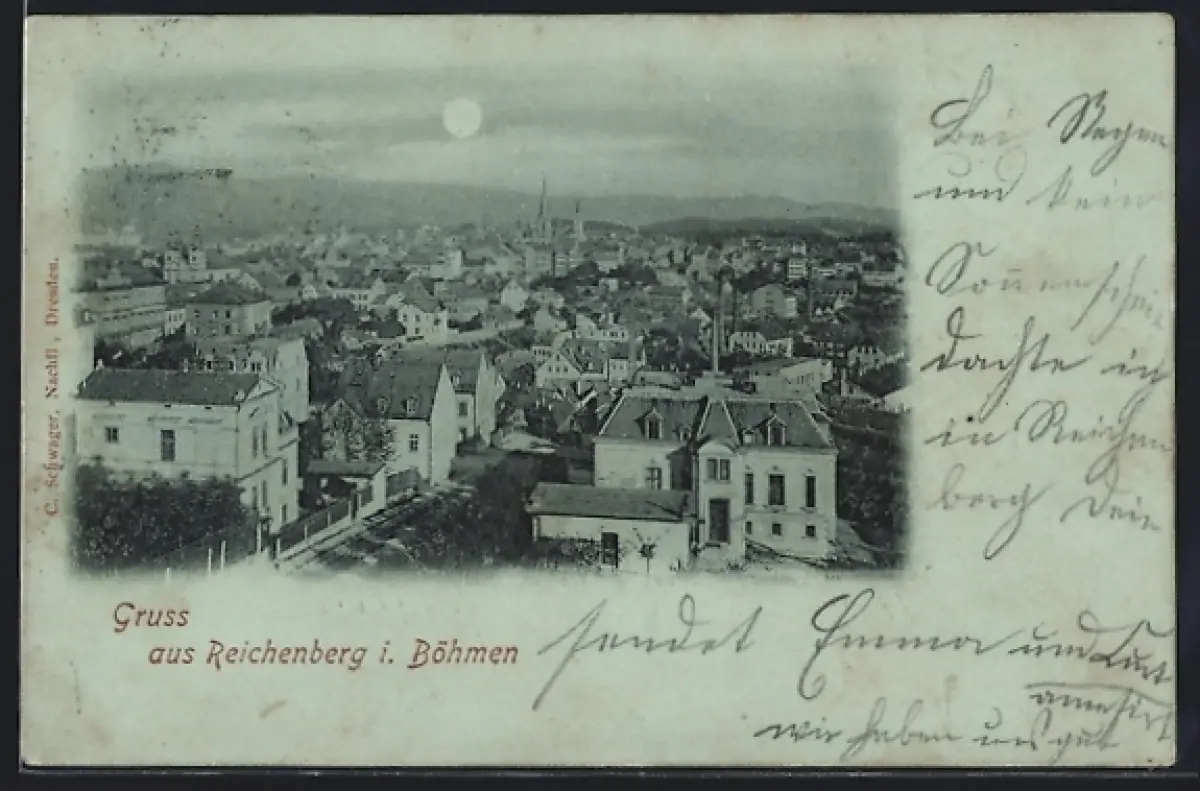 C. Schwager, Nachfl, Dresden.
Gruss
aus Reichenberg i. Böhmen
Bei Regen
und kein
Sonnenschein
dachte ich
in Reichen
berg Dein
sendet Emma und Kurt
wir haben uns gut
amüsirt